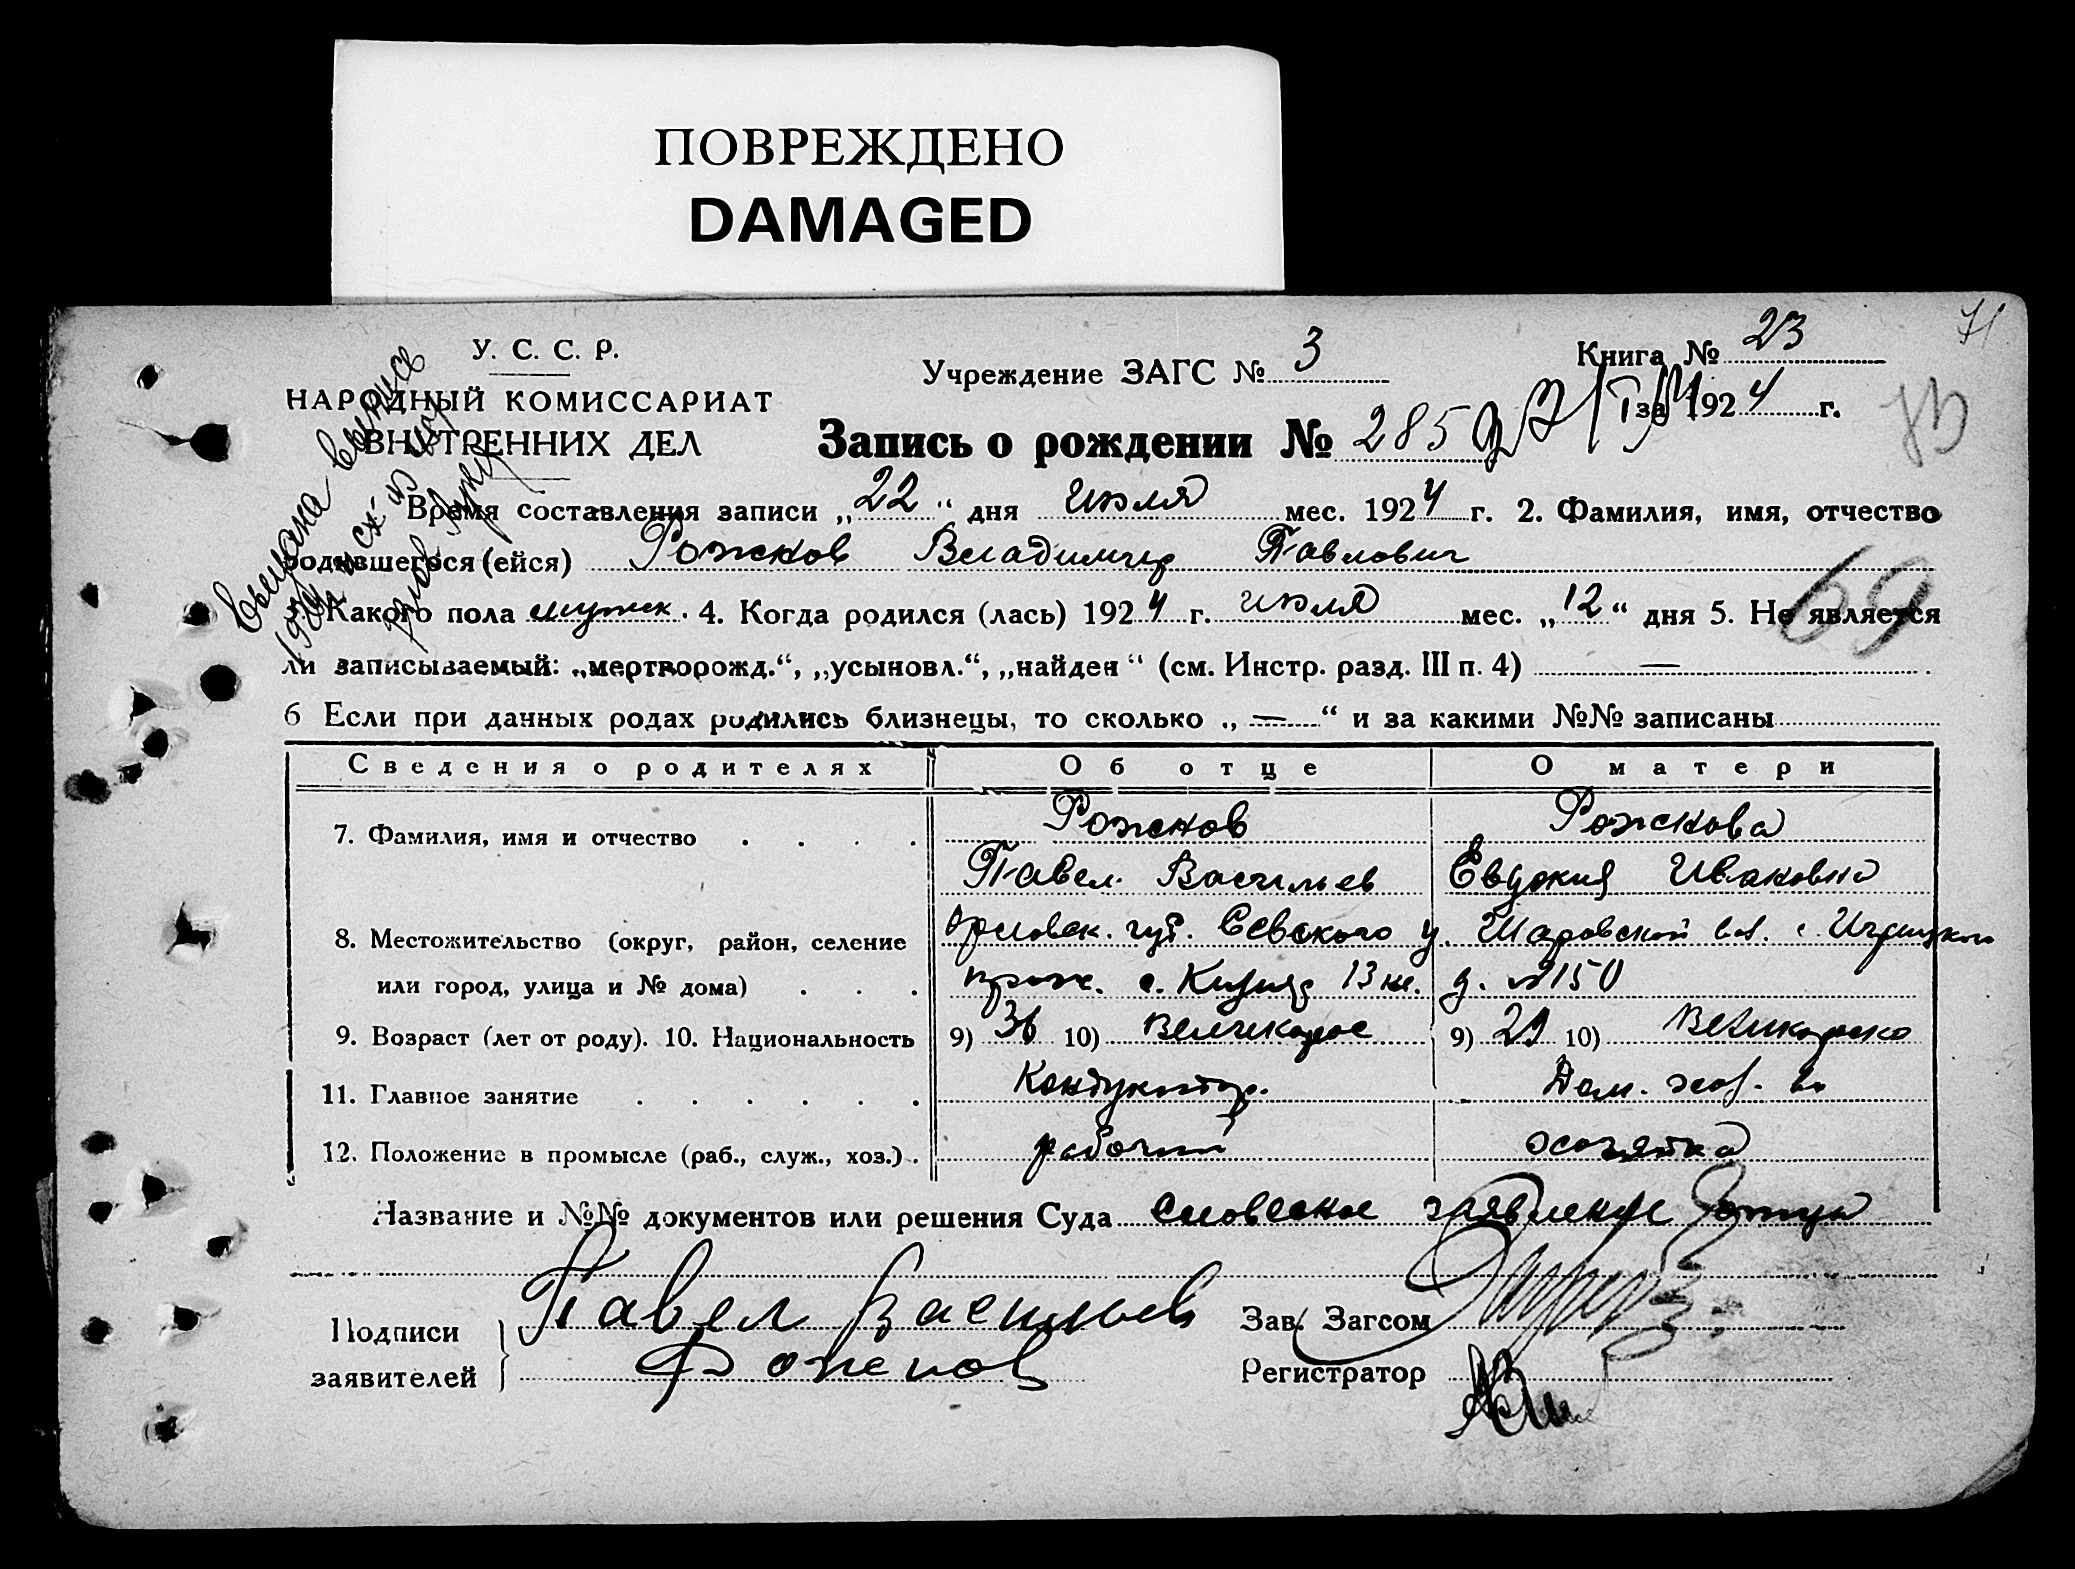 ПОВРЕЖДЕНО
DAMAGED
71
У. С. С. Р.
Учреждение ЗАГС № 3
Книга № 23
НАРОДНЫЙ КОМИССАРИАТ
за 1924 г.
ВНУТРЕННИХ ДЕЛ
Запись о рождении № 285
Время составления записи „22“ дня июля мес. 1924 г. 2. Фамилия, имя, отчество
родившегося (ейся) Рожков Владимир Павлович
69
Какого пола мужск. 4. Когда родился (лась) 1924 г. июля мес. „12“ дня 5. Не является
ли записываемый: „мертворожд.“, „усыновл.“, „найден“ (см. Инстр. разд. III п. 4) —
6 Если при данных родах родились близнецы, то сколько „—“ и за какими №№ записаны
Сведения о родителях Об отце О матери
7. Фамилия, имя и отчество Рожков Рожкова
Павел Васильев Евдокия Ивановна
8. Местожительство (округ, район, селение Орловск. губ. Севского у. Шаровской вол. с.
или город, улица и № дома) прож. с. 13 д. №150
9. Возраст (лет от роду). 10. Национальность 9) 36 10) Великорос 9) 29 10) Великороска
11. Главное занятие Кондуктор. Дом. хоз. во
12. Положение в промысле (раб., служ., хоз.) рабочий хозяйка
Название и №№ документов или решения Суда словесное заявление отца
Подписи заявителей } Павел Васильев
Рожков
Зав. Загсом
Регистратор